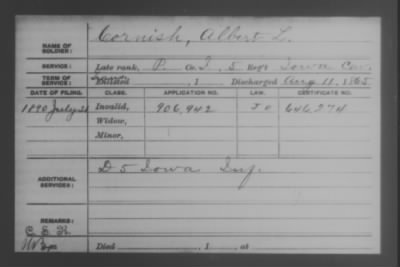 NAME OF SOLDIER: Cornish, Albert L.
SERVICE: Late rank, P. Co. I, 5 Reg't Iowa Cav.
TERM OF SERVICE: Enlisted , 1 Discharged Aug 11, 1865
DATE OF FILING. CLASS. APPLICATION NO. LAW. CERTIFICATE NO.
1890 July 21 Invalid, 906,942 646,274
Widow,
Minor,
ADDITIONAL SERVICES: D 5 Iowa Inf.
REMARKS:
C. E. H.
Died , 1 , at